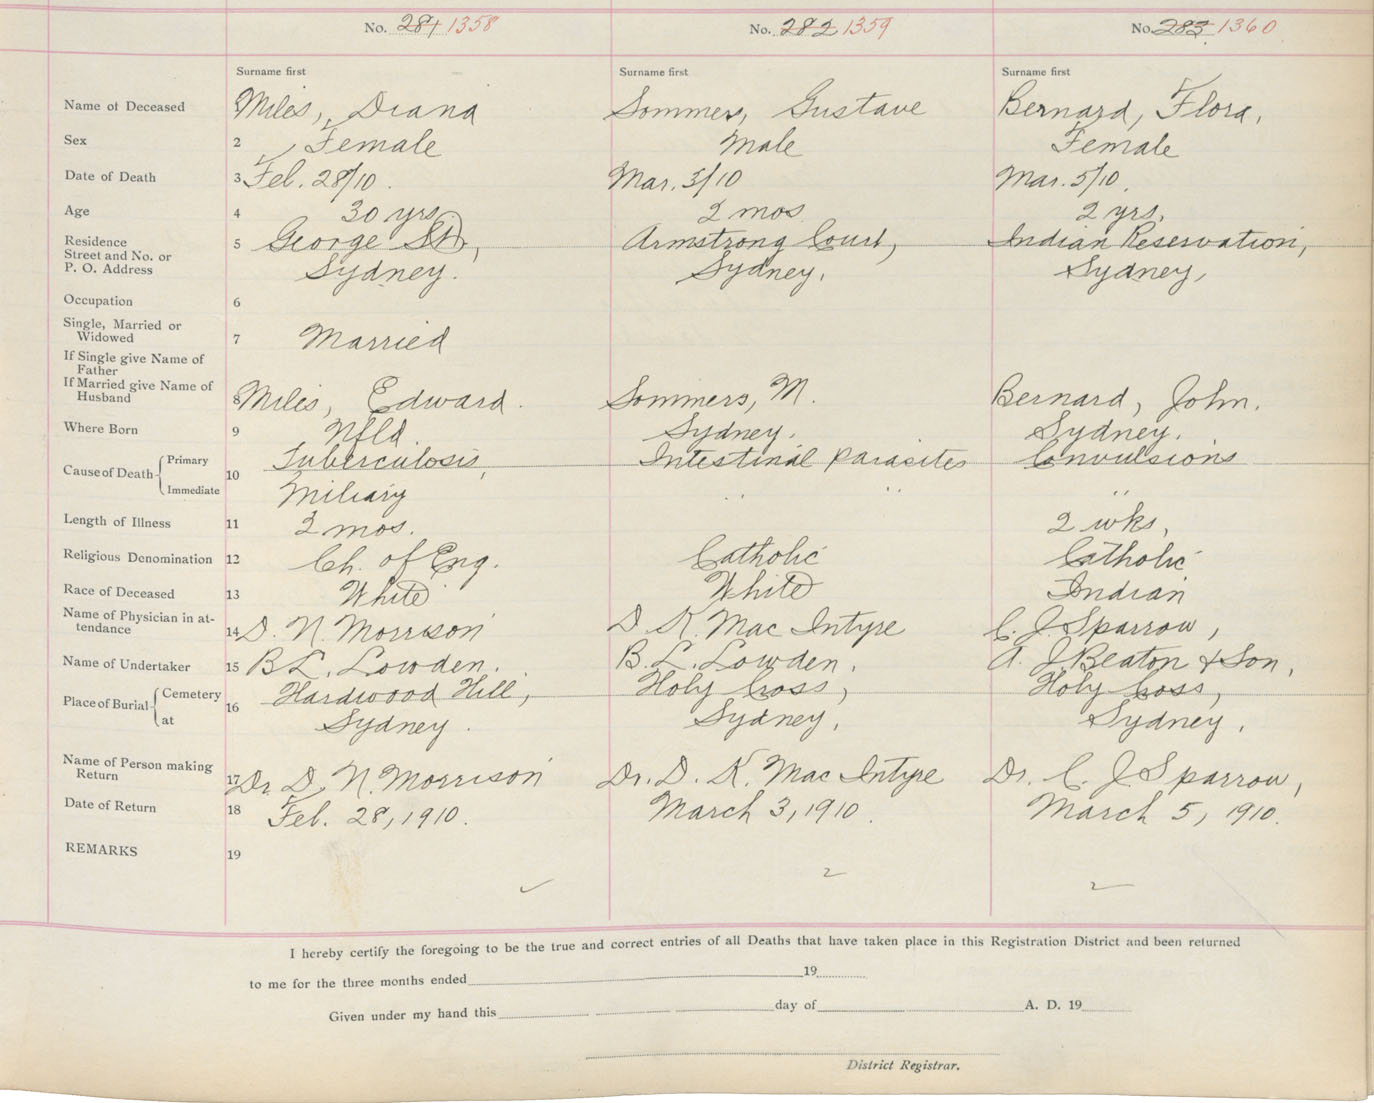 No. 281 1358 No. 282 1359 No. 283 1360
Surname first Surname first Surname first
Name of Deceased 1 Miles, Diana Sommers, Gustave Bernard, Flora,
Sex 2 Female Male Female
Date of Death 3 Feb. 28/10. Mar. 3/10 Mar. 5/10.
Age 4 30 yrs 2 mos 2 yrs,
Residence 5 George St., Armstrong Court, Indian Reservation,
Street and No. or
P. O. Address Sydney. Sydney, Sydney,
Occupation 6
Single, Married or
Widowed 7 Married
If Single give Name of
Father
If Married give Name of
Husband 8 Miles, Edward. Sommers, M. Bernard, John.
Where Born 9 Nfld. Sydney. Sydney.
Cause of Death Primary 10 Tuberculosis, Intestinal Parasites Convulsions
Immediate Miliary " " "
Length of Illness 11 2 mos. 2 wks,
Religious Denomination 12 Ch. of Eng. Catholic Catholic
Race of Deceased 13 White White Indian
Name of Physician in at-
tendance 14 D. N. Morrison D. K. Mac Intyre C. J. Sparrow,
Name of Undertaker 15 B L. Lowden. B. L. Lowden. A. J. Beaton & Son,
Place of Burial Cemetery 16 Hardwood Hill, Holy Cross, Holy Coss,
at Sydney. Sydney, Sydney.
Name of Person making
Return 17 Dr. D. N. Morrison Dr. D. K. Mac Intyre Dr. C. J. Sparrow,
Date of Return 18 Feb. 28, 1910. March 3, 1910. March 5, 1910.
REMARKS 19
I hereby certify the foregoing to be the true and correct entries of all Deaths that have taken place in this Registration District and been returned
to me for the three months ended 19
Given under my hand this day of A. D. 19
District Registrar.